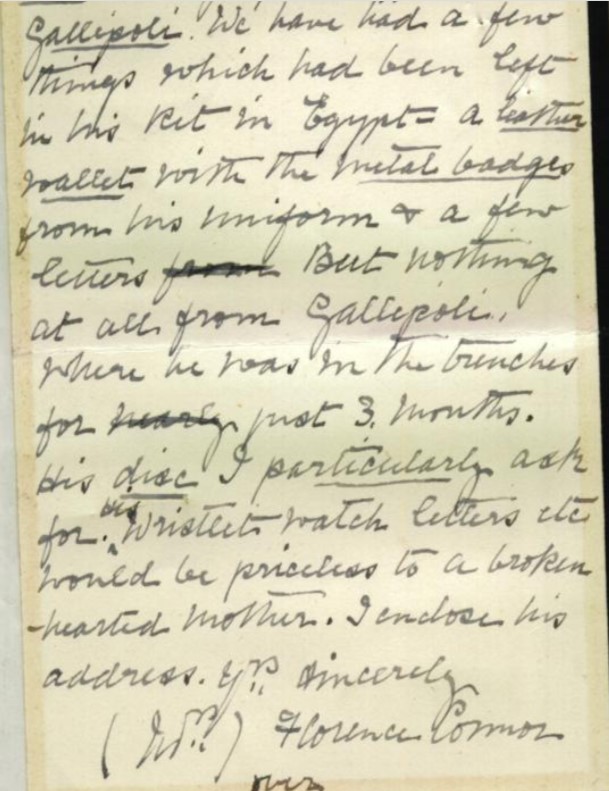 Gallipoli. We have had a few
things which had been left
in his kit in Egypt = a leather
wallet with the metal badges
from his uniform & a few
letters from But nothing
at all from Gallipoli,
where he was in the trenches
for nearly just 3. months.
His disc I particularly ask
for. his Wristlet watch letters etc
would be priceless to a broken
-hearted mother. I enclose his
address. Yrs. sincerely
(Mrs.) Florence Connor
over